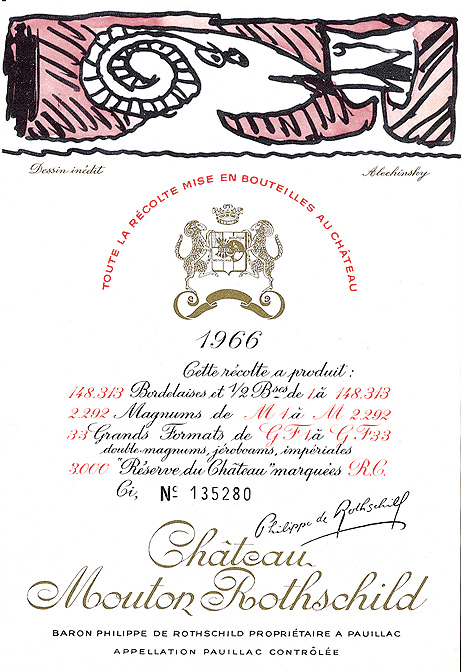 Dessin inédit
Alechinsky
TOUTE LA RÉCOLTE MISE EN BOUTEILLES AU CHÂTEAU
1966
Cette récolte a produit :
148.313 Bordelaises et 1/2 Bses de 1 à 148.313
2.292 Magnums de M 1 à M 2.292
33 Grands Formats de G F 1 à G.F 33
double-magnums, jéroboams, impériales
3.000 "Réserve du Château" marquées R.C.
Ci, Nº 135280
Philippe de Rothschild
Château
Mouton Rothschild
BARON PHILIPPE DE ROTHSCHILD PROPRIÉTAIRE A PAUILLAC
APPELLATION PAUILLAC CONTRÔLÉE